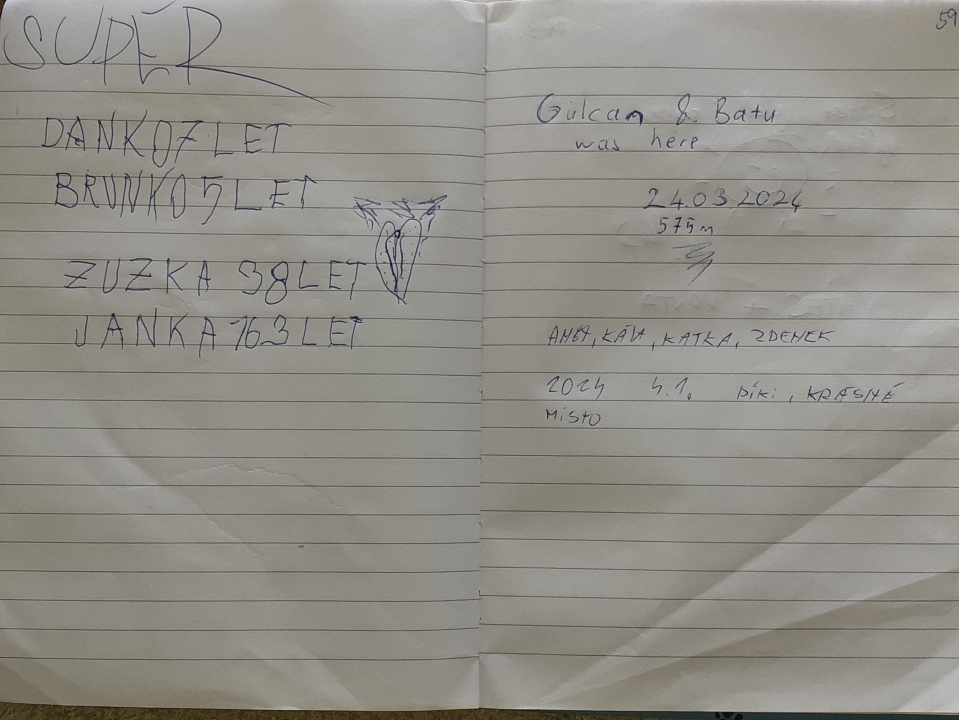 SUPÉR
DANKO 7 LET
BRUNKO 5 LET
ZUZKA 38 LET
JANKA 163 LET
59
Gülcan & Batu
was here
24.03 2024
575m
KATKA, ZDENEK
2024 4.1. DÍKI, KRÁSNÉ
MÍSTO